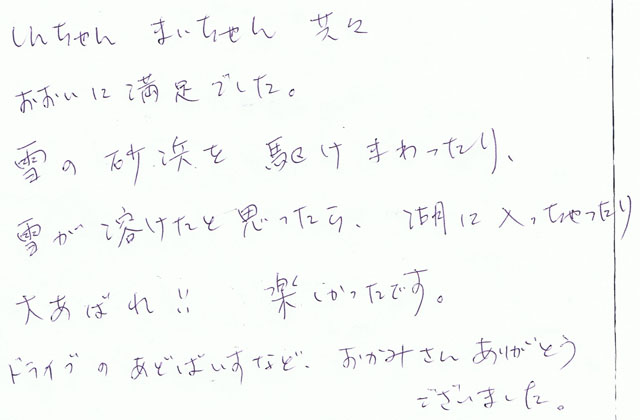 しんちゃん まいちゃん 共々
おおいに満足でした。
雪の砂浜を 駆けまわったり、
雪が溶けたと思ったら、湖に入っちゃったり
大あばれ!! 楽しかったです。
ドライブのあどばいすなど、おかみさんありがとう
ございました。